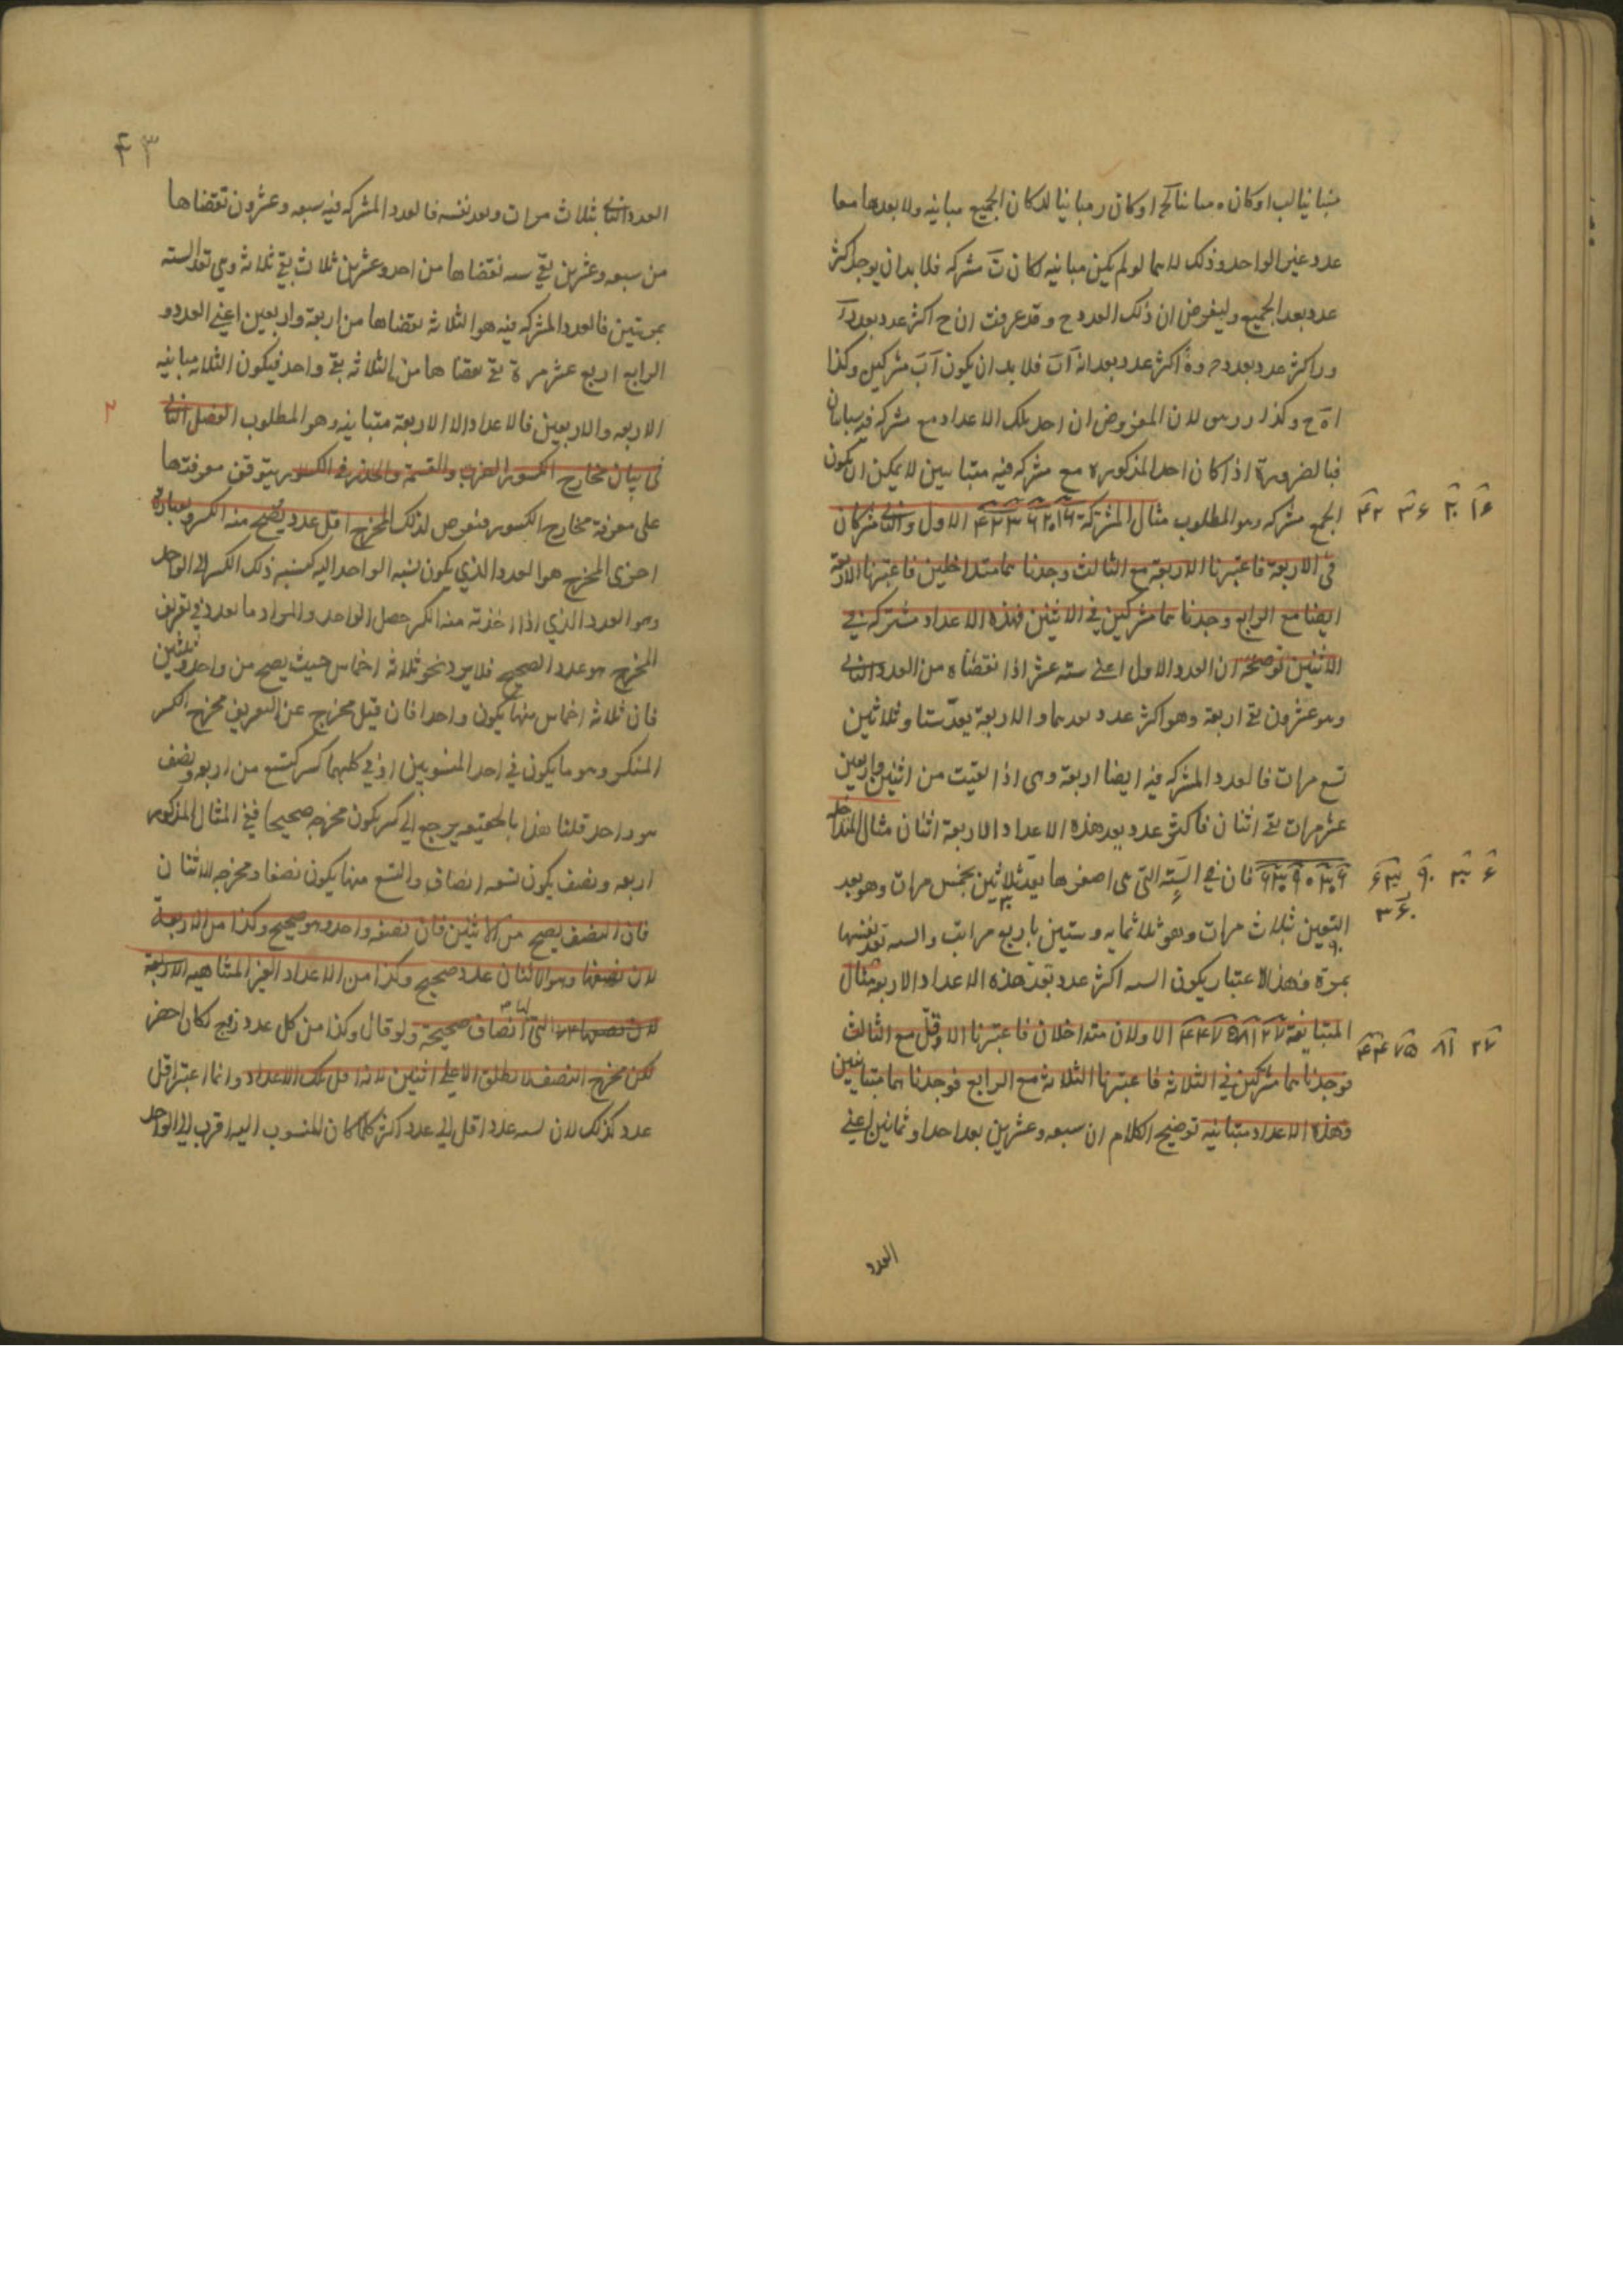 متباينا لب او كان ه مباينا لح او كان ر مباينا لد كان الجميع متباينه ولا يعدها معا
عدد غير الواحد وذلك لانها لو لم يكن متباينه لكانت مشتركه فلا بد ان يوجد اكثر
عدد يعد الجميع وليفرض ان ذلك العدد ح وقد عرفت ان ح اكثر عدد يعد
ور اكثر عدد يعد وه اكثر عدد يعد ان اب فلا بد ان يكون اب مشتركين وكذا
وكذا لان المفروض ان احد تلك الاعداد مع مشتركه فيه متباينان
فبالضرورة اذا كان احد المذكوره مع مشتركه فيه متباينين لا يمكن ان يكون
الجميع مشتركه وهو المطلوب مثال المشتركة ١٦ ٢٠ ٣٦ ٤٢ الاول والثاني مشتركان
١٦ ٢٠ ٣٦ ٤٢
في الاربعة فاعتبرنا الاربعة مع الثالث وجدناهما متداخلين فاعتبرنا الاربعة
ايضا مع الرابع وجدناهما مشتركين في الاثنين فهذه الاعداد مشتركة في
الاثنين توضيحه ان العدد الاول اعني سته عشر اذا نقضناه من العدد الثاني
وهو عشرون بقي اربعة وهو اكثر عدد يعدهما والاربعة يعد ستا وثلاثين
تسع مرات فالعدد المشتركه فيه ايضا اربعة وهي اذا بقيت من اثنين واربعين
عشر مرات بقي اثنان فاكثر عدد يعد هذه الاعداد الاربعة اثنان مثال المتداخله
فان في السته التي هي اصغرها يعد ثلاثين بخمس مرات وهو يعد
٦ ٣٠ ٩٠ ٣٦٠
٣٦٠
التسعين ثلاث مرات وهو ثلاثمايه وستين باربع مرات والسته تعد نفسها
بمرة فهذا الاعتبار يكون السته اكثر عدد يعد هذه الاعداد الاربعة مثال
المتباينة ٢٧ ٨١ ٧٥ ٤٤ الاولان متداخلان فاعتبرنا الاقل مع الثالث
٢٧ ٨١ ٧٥ ٤٤
فوجدناهما مشتركين في الثلاثه فاعتبرنا الثلاثة مع الرابع فوجدناهما متباينين
وهذه الاعداد متباينه توضيح الكلام ان سبعه وعشرين يعد احدا وثمانين اعني
العدد
٤٣
العدد الثاني بثلاث مرات ويعد نفسه فالعدد المشتركه فيه سبعه وعشرون نقضناها
من سبعه وعشرين بقي سته نقضناها من احد وعشرين ثلاث بقي ثلاثه وهي تعد السته
بمرتين فالعدد المشتركه فيه هو الثلاثه نقضناها من اربعة واربعين اعني العدد
الرابع اربع عشر مرة بقي نقضناها من الثلاثه بقي واحد فيكون الثلاثه مباينه
الاربعه والاربعين فالاعداد الاربعة متباينه وهو المطلوب الفصل الثاني
٢
في بيان مخارج الكسور الضرب والقسمة والجذر في الكسور يتوقف معرفتها
على معرفة مخارج الكسور فنعرض لذلك المخرج اقل عدد يصح منه الكسر وبعبارة
اخرى المخرج هو العدد الذي يكون نسبه الواحد اليه كنسبه ذلك الكسر الى الواحد
وهو العدد الذي اذا اخذته منه الكسر حصل الواحد والمراد ما لعدد في تعريف
المخرج هو عدد الصحيح فلا يرد نحو ثلاثه اخماس حيث يصح من واحد وثلثين
فان ثلاثه اخماس منها يكون واحدا فان قيل مخرج عن التعريف مخرج الكسر
المنكسر وهو ما يكون في احد المنسوبين او في كليهما كسر كتسع من اربعه ونصف
هو واحد قلنا هذا بالحقيقه يرجع الى كسر يكون مخرجه صحيحا ففي المثال المذكور
اربعه ونصف يكون تسعه انصاف والتسع منها يكون نصفا ومخرجه الاثنان
فان النصف يصح من الاثنين فان نصفه واحد وهو صحيح وكذا من الاربعة
لان نصفها وهو الاثنان عدد صحيح وكذا من الاعداد الغير المتناهيه الاربعة
انصاف صحيحة ولو قال وكذا من كل عدد زوج لكان اخصر
لكن مخرج النصف لا يطلق الا على اثنين لانه اقل تلك الاعداد وانما اعتبر اقل
عدد كذلك لان نسبه عدد اقل الى عدد اكثر كلما كان المنسوب اليه اقرب الى الواحد